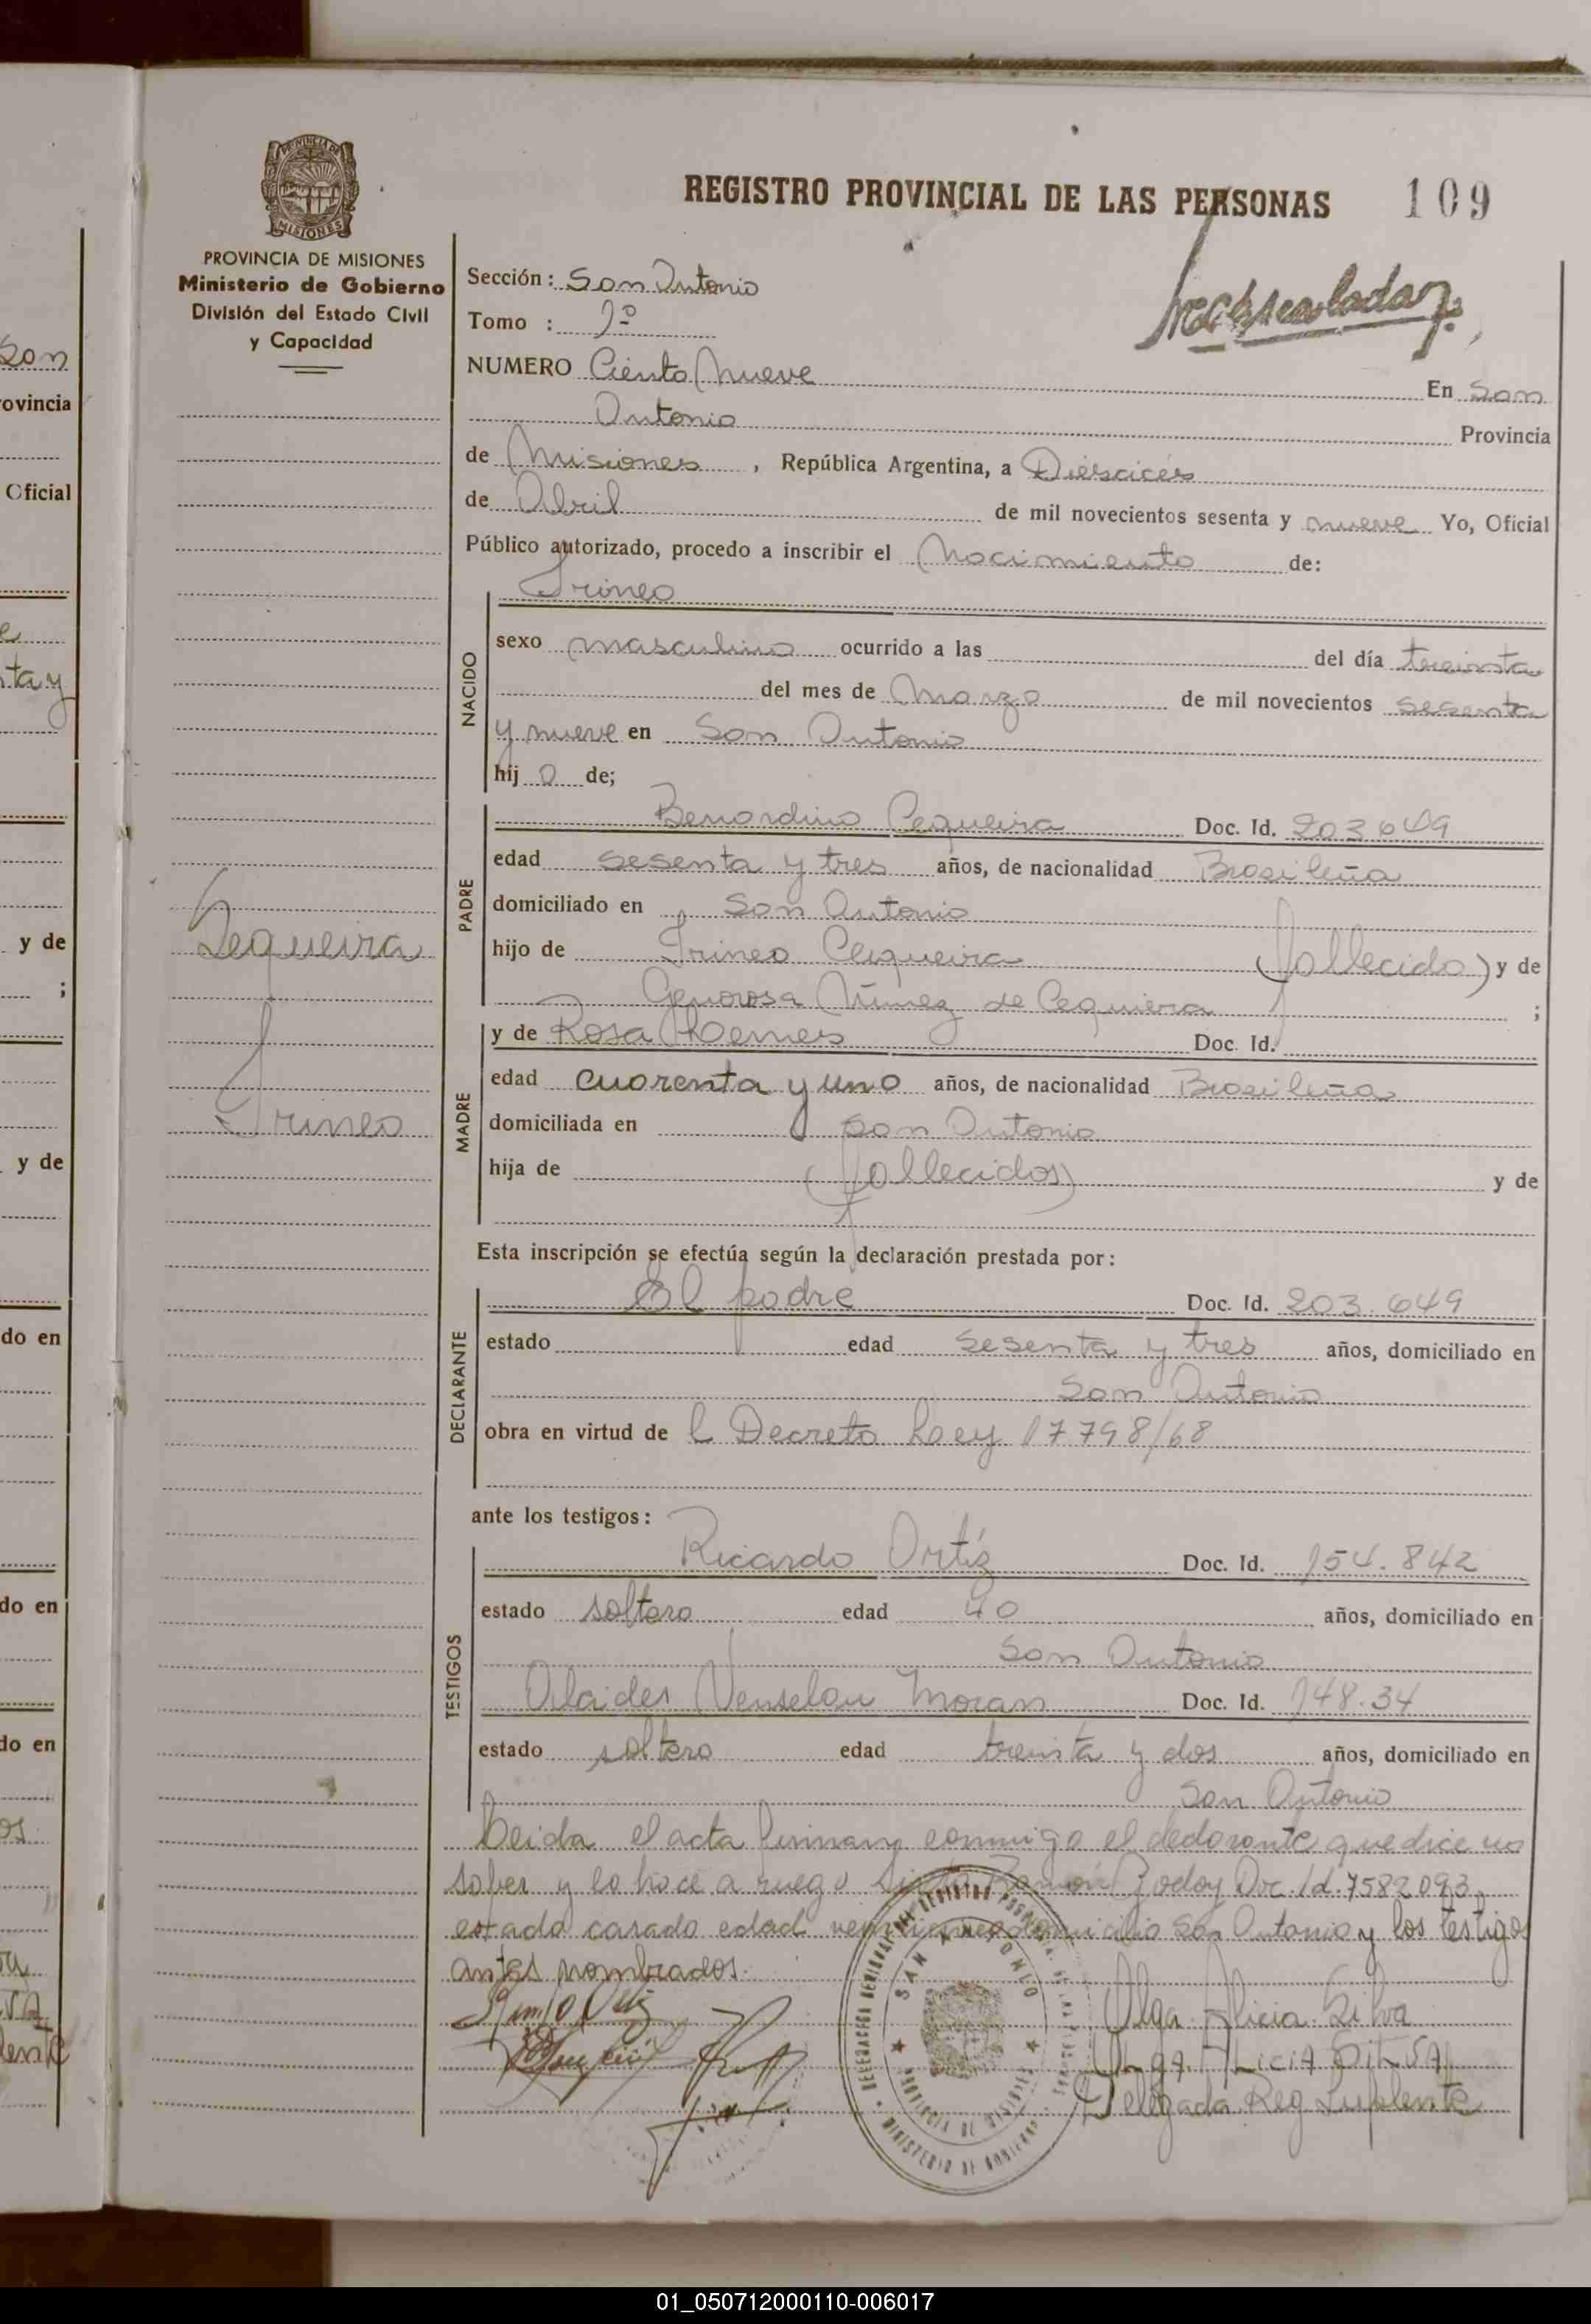 REGISTRO PROVINCIAL DE LAS PERSONAS 109
PROVINCIA DE MISIONES
Ministerio de Gobierno
División del Estado Civil
y Capacidad
Sección: San Antonio
Tomo : 1º
NUMERO Ciento Nueve En San
Antonio Provincia
de Misiones, República Argentina, a Diescices
de Abril de mil novecientos sesenta y nueve Yo, Oficial
Público autorizado, procedo a inscribir el Nacimiento de:
NACIDO
Irineo
sexo masculino ocurrido a las del día treinta
del mes de Marzo de mil novecientos sesenta
y nueve en San Antonio
hij o de;
PADRE
Bernardino Cequeira Doc. Id. 203649
edad sesenta y tres años, de nacionalidad Brasileña
domiciliado en San Antonio
hijo de Irineo Cequeira (fallecido) y de
Generosa Núnez de Cequiera ;
Sequeira
Irineo
MADRE
y de Rosa Lemes Doc. Id.
edad cuarenta y uno años, de nacionalidad Brasileña
domiciliada en San Antonio
hija de (fallecidos) y de
Esta inscripción se efectúa según la declaración prestada por:
DECLARANTE
El padre Doc. Id. 203.649
estado edad sesenta y tres años, domiciliado en
San Antonio
obra en virtud de l Decreto Ley 17798/68
ante los testigos:
TESTIGOS
Ricardo Ortíz Doc. Id. 154.842
estado soltero edad 40 años, domiciliado en
San Antonio
Alcides Venselau Moran Doc. Id. 148.34
estado soltero edad treinta y dos años, domiciliado en
San Antonio
Leida el acta firman conmigo el declarante que dice no
saber y lo hace a ruego Ramón Godoy Doc Id. 7582093
estado casado edad domicilio San Antonio y los testigos
antes nombrados.
Olga Alicia Silva
Olga Alicia Silva
Delegada Reg Suplente
01_050712000110-006017